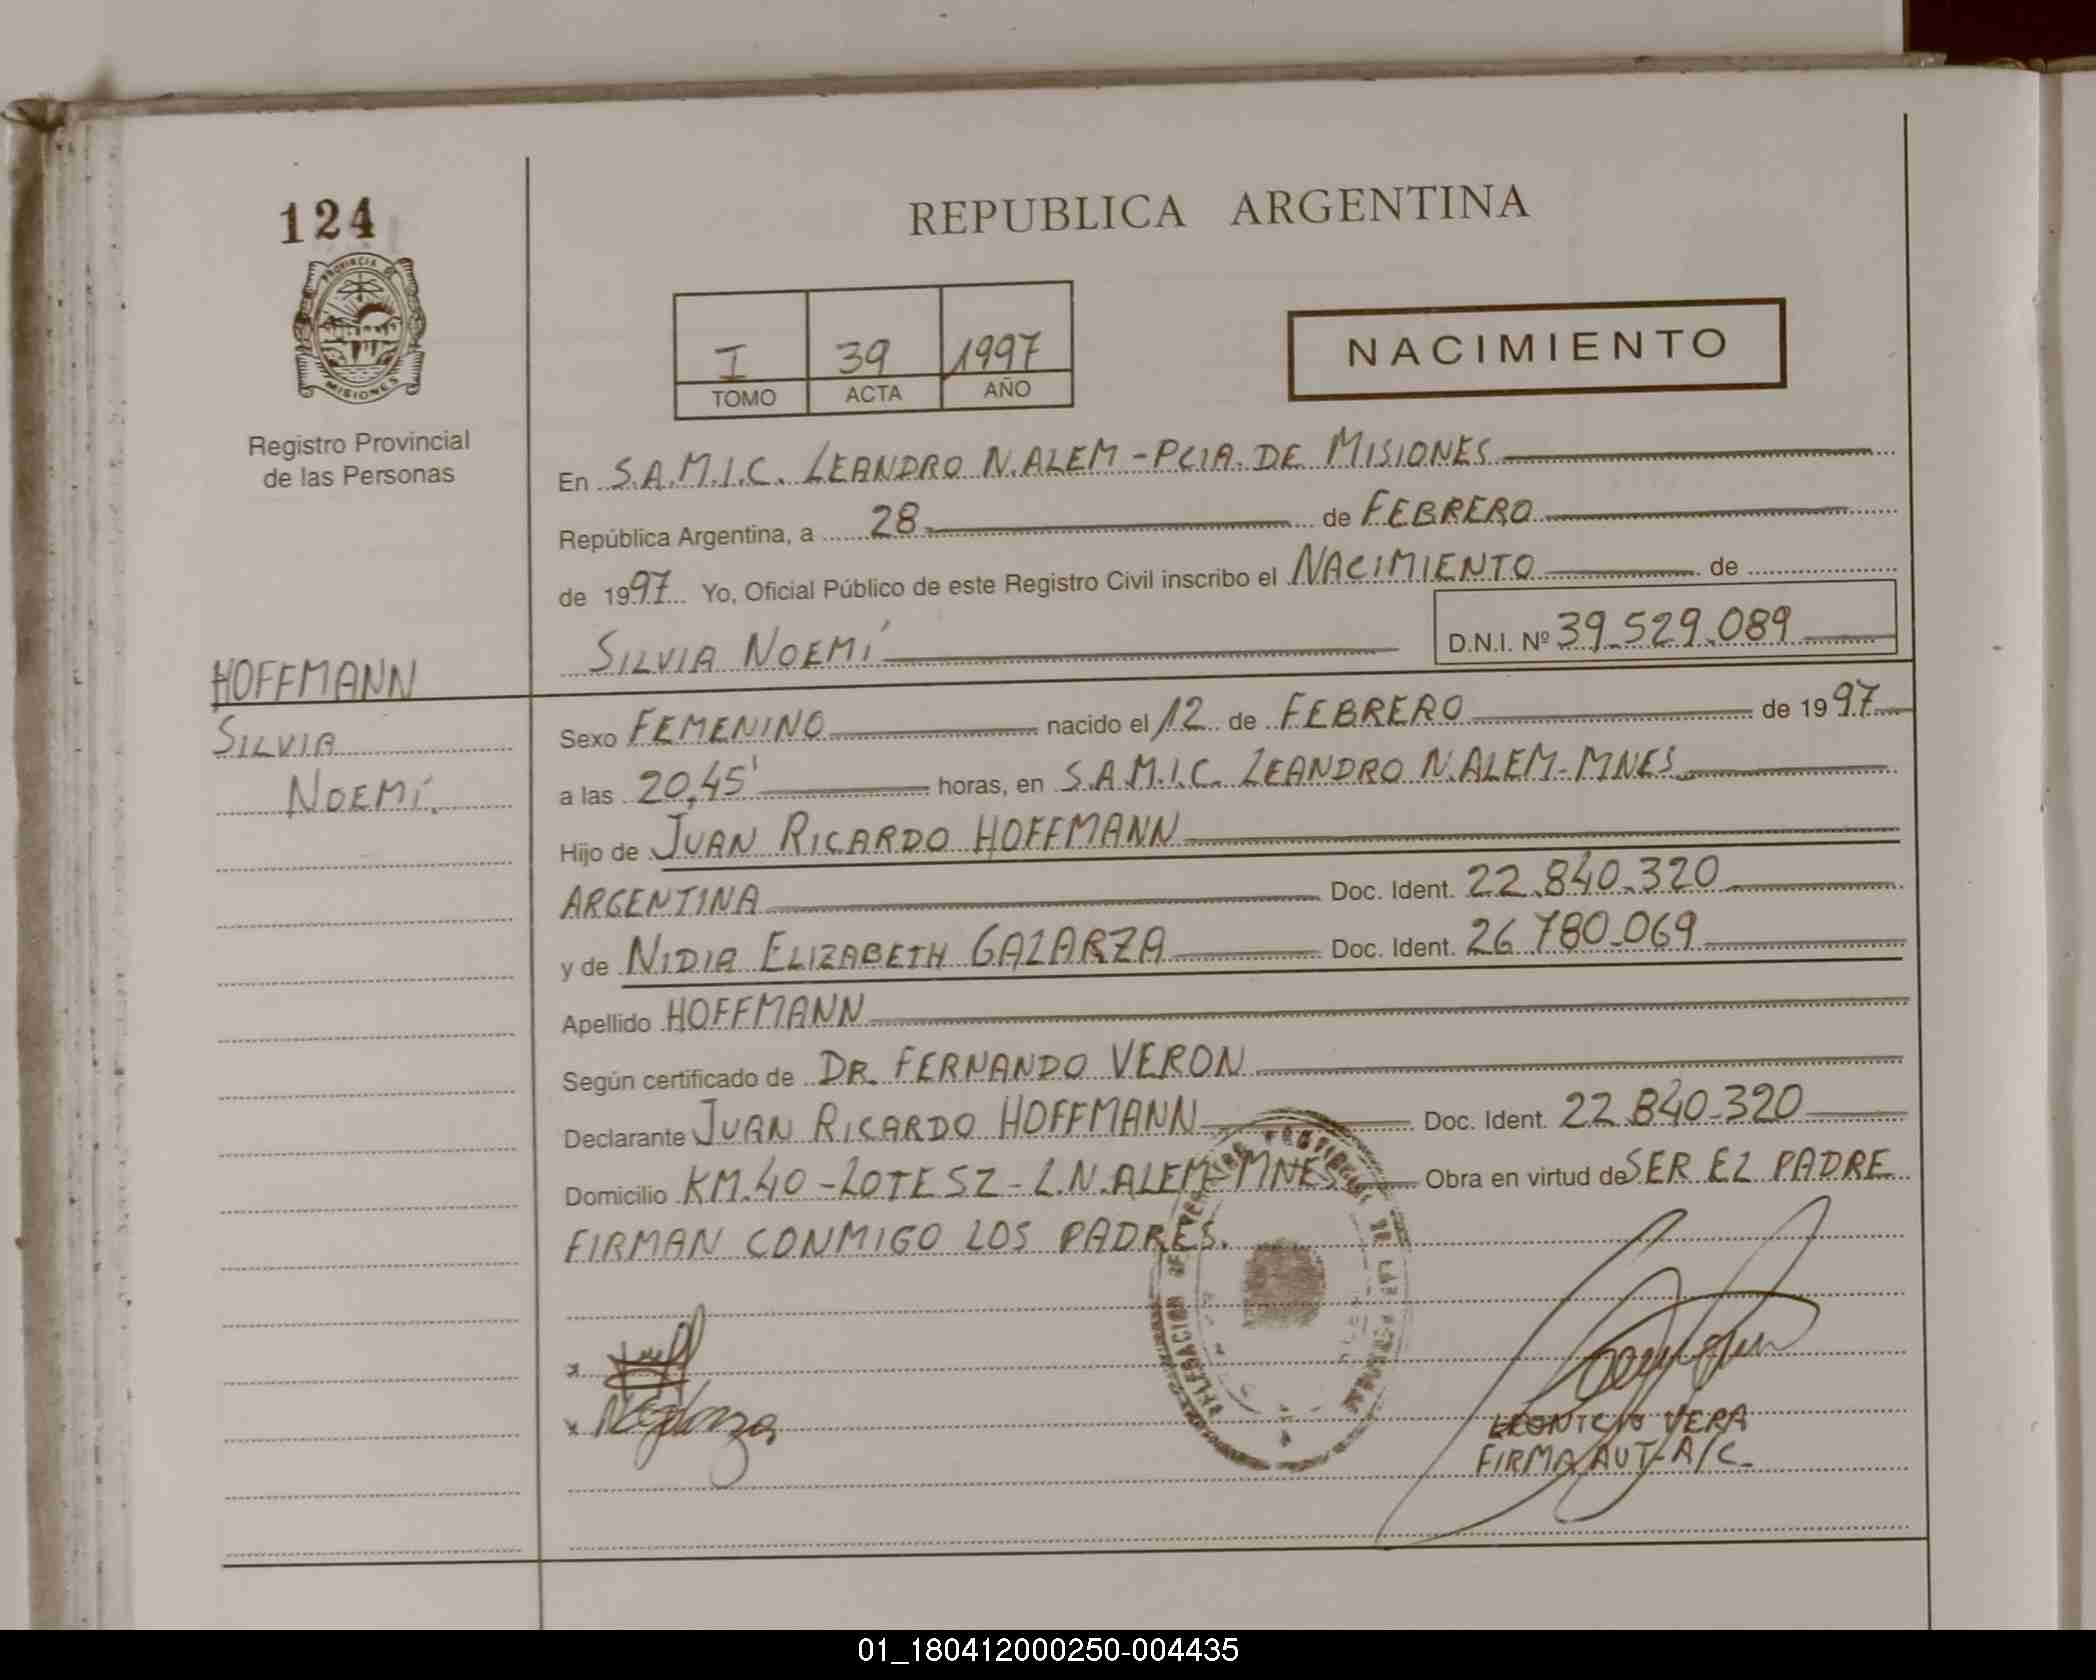 124
REPUBLICA ARGENTINA
PROVINCIA DE
MISIONES
Registro Provincial
de las Personas
I 39 1997
TOMO ACTA AÑO
NACIMIENTO
En S.A.M.I.C. LEANDRO N. ALEM - PCIA. DE MISIONES
República Argentina, a 28 de FEBRERO
de 1997 Yo, Oficial Público de este Registro Civil inscribo el NACIMIENTO de
SILVIA NOEMÍ D.N.I. Nº 39.529.089
HOFFMANN
SILVIA
NOEMÍ.
Sexo FEMENINO nacido el 12 de FEBRERO de 1997
a las 20,45' horas, en S.A.M.I.C. LEANDRO N. ALEM - MNES
Hijo de JUAN RICARDO HOFFMANN
ARGENTINA Doc. Ident. 22.840.320
y de NIDIA ELIZABETH GALARZA Doc. Ident. 26.780.069
Apellido HOFFMANN
Según certificado de DR. FERNANDO VERON
Declarante JUAN RICARDO HOFFMANN Doc. Ident. 22.840.320
Domicilio KM. 40 - LOTE 52 - L.N. ALEM - MNES Obra en virtud de SER EL PADRE
FIRMAN CONMIGO LOS PADRES.
LEONICIO VERA
FIRMA AUT- A/C.
01_180412000250-004435